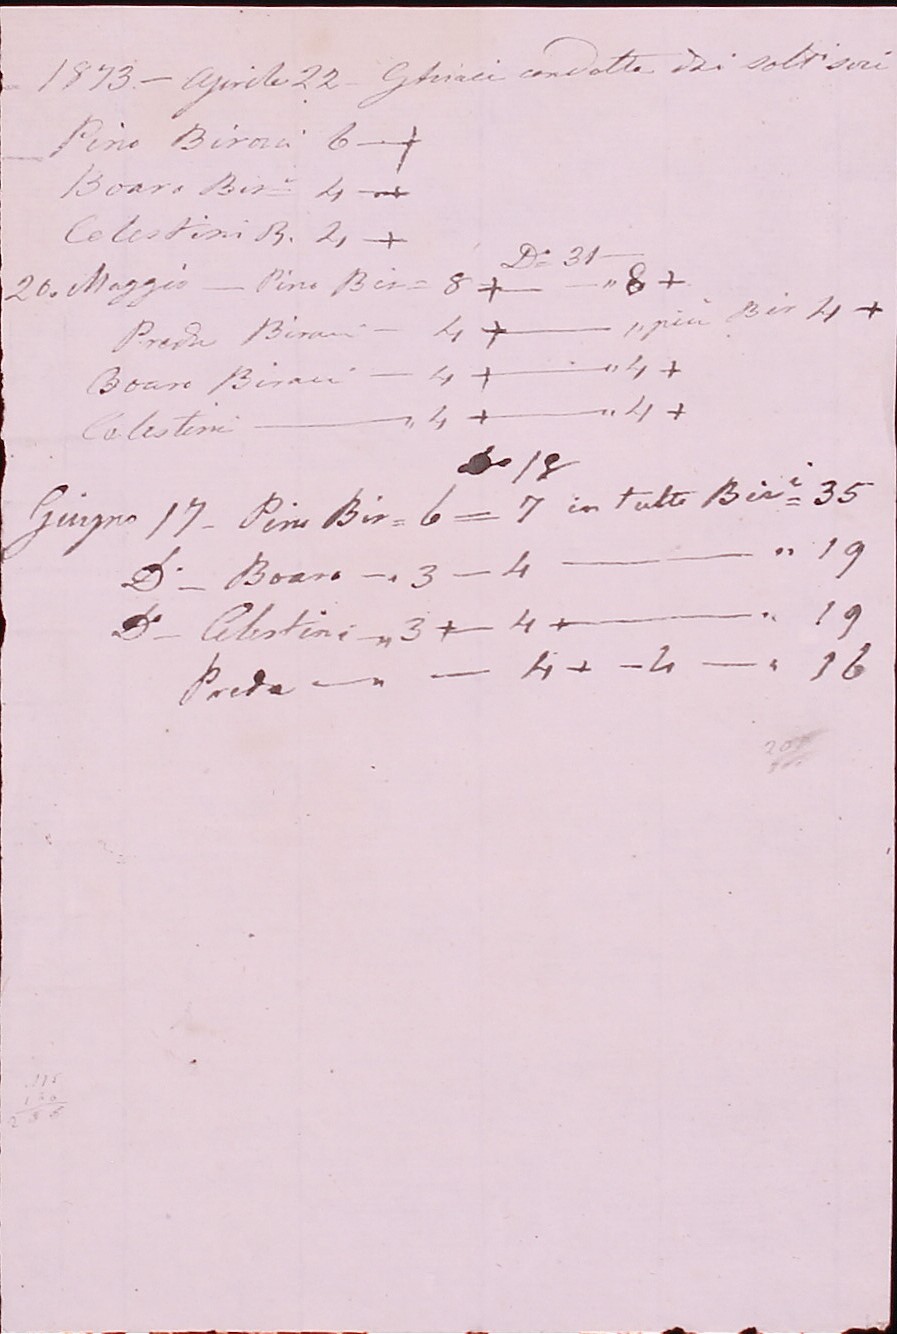 1873. - Aprile 22 - Ghiaci condotta dai solti soci
Pino Birocci 6 — +
Boaro Bir.i 4 — +
Celestini B. 4 +
D.o 31 —
20. Maggio — Pino Bir = 8 + — — " 8 +
Preda Birocci — 4 + — " più Bir 4 +
Boaro Birocci — 4 + — " 4 +
Celestini — " 4 + — " 4 +
18
Giugno 17 - Pino Bir = 6 = 7 in tutto Bir.i = 35
D.o — Boaro — " 3 — 4 — " 19
D.o — Celestini — " 3 + — 4 + — " 19
Preda — " — 4 + — 4 — " 16